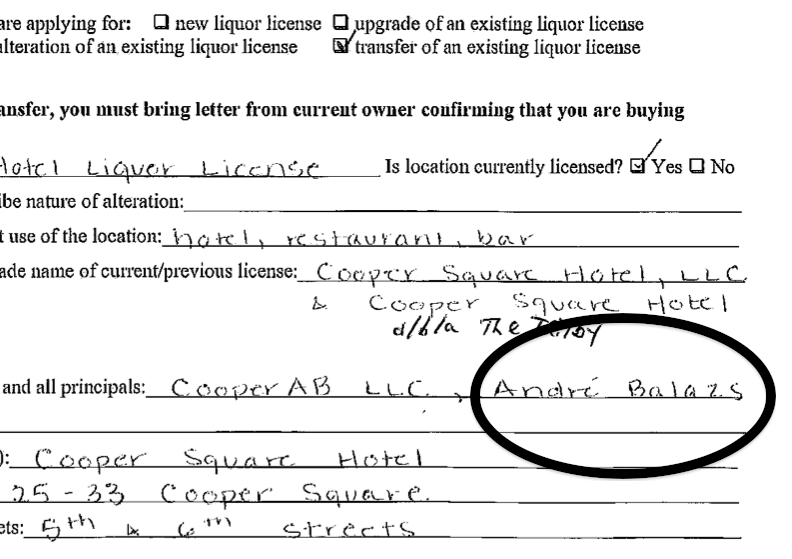 are applying for: ☐ new liquor license ☐ upgrade of an existing liquor license
alteration of an existing liquor license ☑ transfer of an existing liquor license
ansfer, you must bring letter from current owner confirming that you are buying
Hotel Liquor License Is location currently licensed? ☑ Yes ☐ No
ibe nature of alteration:
t use of the location: hotel, restaurant, bar
ade name of current/previous license: Cooper Square Hotel, LLC
& Cooper Square Hotel
d/b/a The
and all principals: Cooper AB LLC, André Balazs
): Cooper Square Hotel
25-33 Cooper Square.
ets: 5th & 6th streets